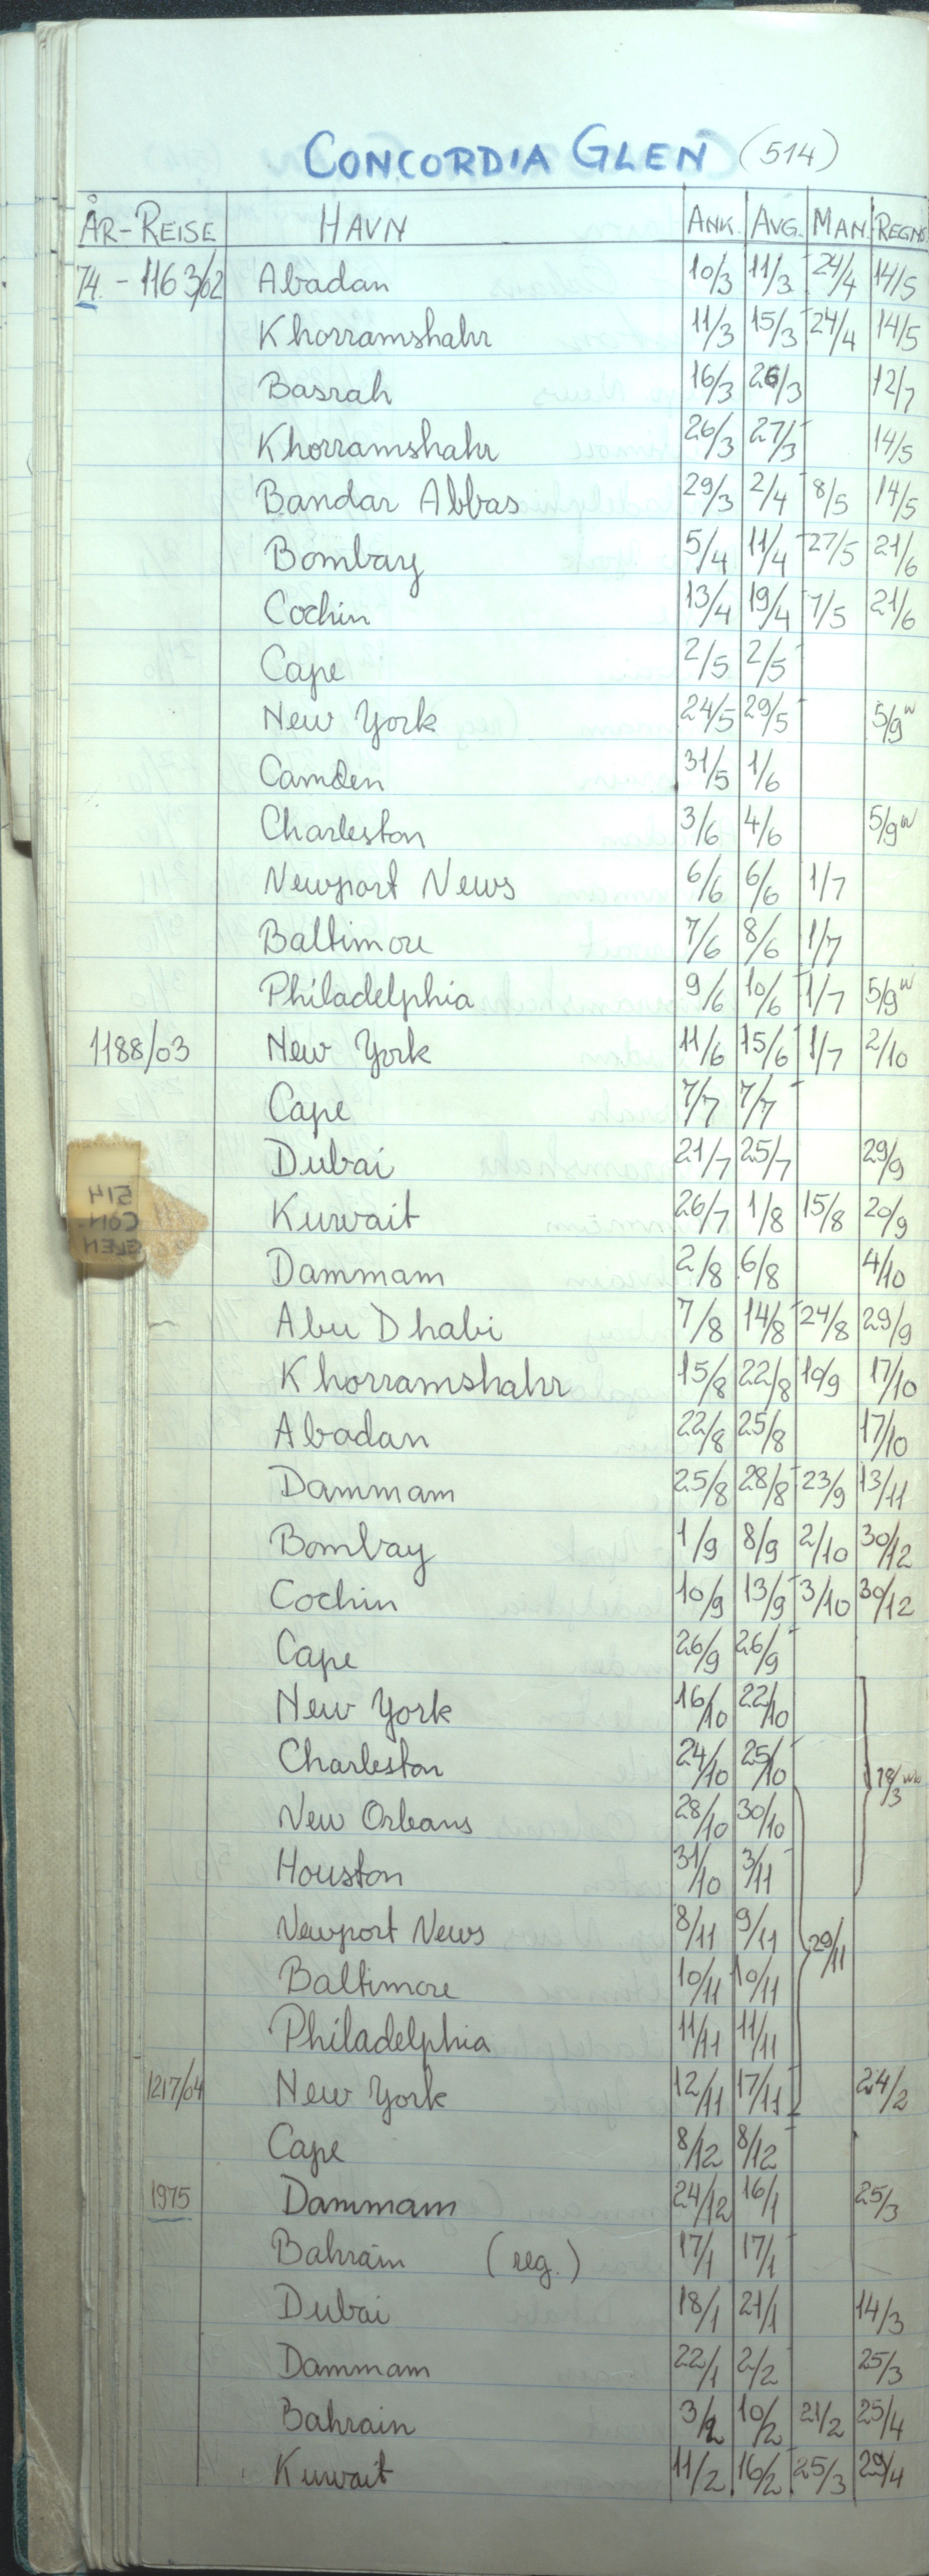 CONCORDIA GLEN (514)
ÅR-REISE HAVN ANK. AVG. MAN. REGNS
74. - 1163/02 Abadan 10/3 11/3 24/4 14/5
Khorramshahr 11/3 15/3 24/4 14/5
Basrah 16/3 26/3 12/7
Khorramshahr 26/3 27/3 14/5
Bandar Abbas 29/3 2/4 8/5 14/5
Bombay 5/4 11/4 27/5 21/6
Cochin 13/4 19/4 7/5 21/6
Cape 2/5 2/5
New York 24/5 29/5 5/9 w
Camden 31/5 1/6
Charleston 3/6 4/6 5/9 w
Newport News 6/6 6/6 1/7
Baltimore 7/6 8/6 1/7
Philadelphia 9/6 10/6 1/7 5/9 w
1188/03 New York 11/6 15/6 1/7 2/10
Cape 7/7 7/7
Dubai 21/7 25/7 29/9
Kuwait 26/7 1/8 15/8 20/9
Dammam 2/8 6/8 4/10
Abu Dhabi 7/8 14/8 24/8 29/9
Khorramshahr 15/8 22/8 10/9 17/10
Abadan 22/8 25/8 17/10
Dammam 25/8 28/8 23/9 13/11
Bombay 1/9 8/9 2/10 30/12
Cochin 10/9 13/9 3/10 30/12
Cape 26/9 26/9
New York 16/10 22/10
Charleston 24/10 25/10 18/3
New Orleans 28/10 30/10
Houston 31/10 3/11
Newport News 8/11 9/11 29/11
Baltimore 10/11 10/11
Philadelphia 11/11 11/11
1217/04 New York 12/11 17/11 24/2
Cape 8/12 8/12
1975 Dammam 24/12 16/1 25/3
Bahrain (reg.) 17/1 17/1
Dubai 18/1 21/1 14/3
Dammam 22/1 2/2 25/3
Bahrain 3/2 10/2 21/2 25/4
Kuwait 11/2 16/2 25/3 29/4
514
CON.
GLEN